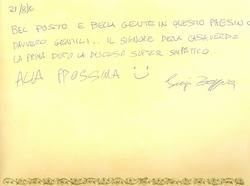 21/8/
BEL POSTO E BELLA GENTE IN QUESTO PAESINO
DAVVERO GENTILI.. IL SIGNORE DELLA CASA VERDE
LA PRIMA DOPO LA DISCESA SUPER SIMPATICO.
ALLA PROSSIMA